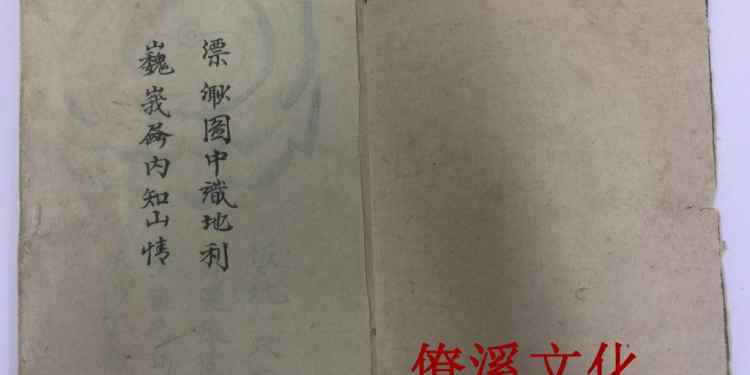 漂渺圖中識地利
巍峩奝内知山情
僚溪文化